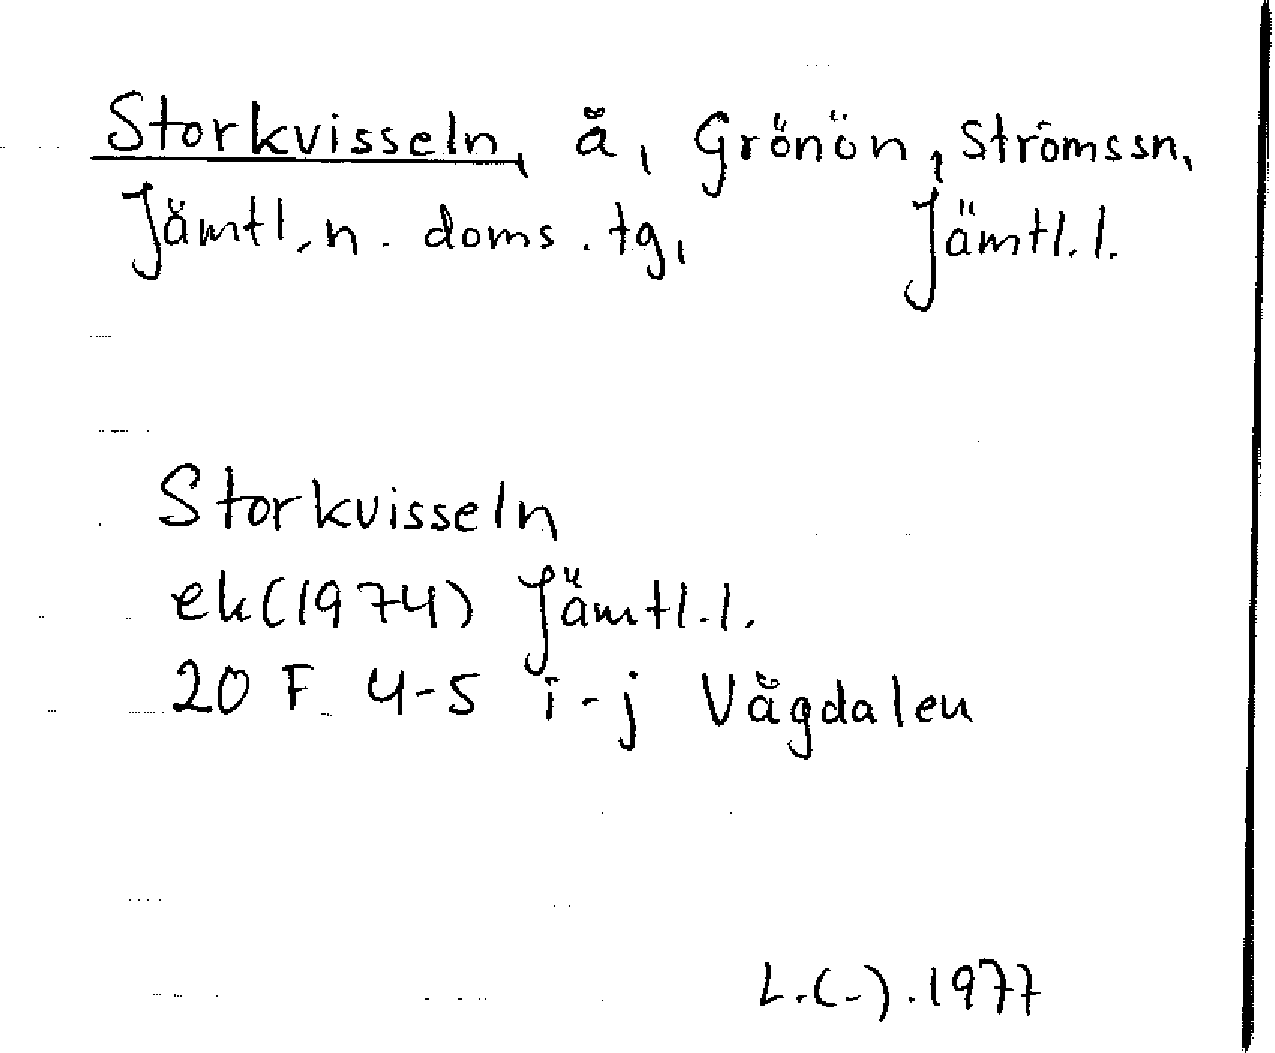 Storkvisseln, å, Grönön, Strömssn,
Jämtl. n. doms. tg, Jämtl. l.
Storkvisseln
ek(1974) Jämtl. l.
20 F 4-5 i-j Vågdalen
L.(-).1977